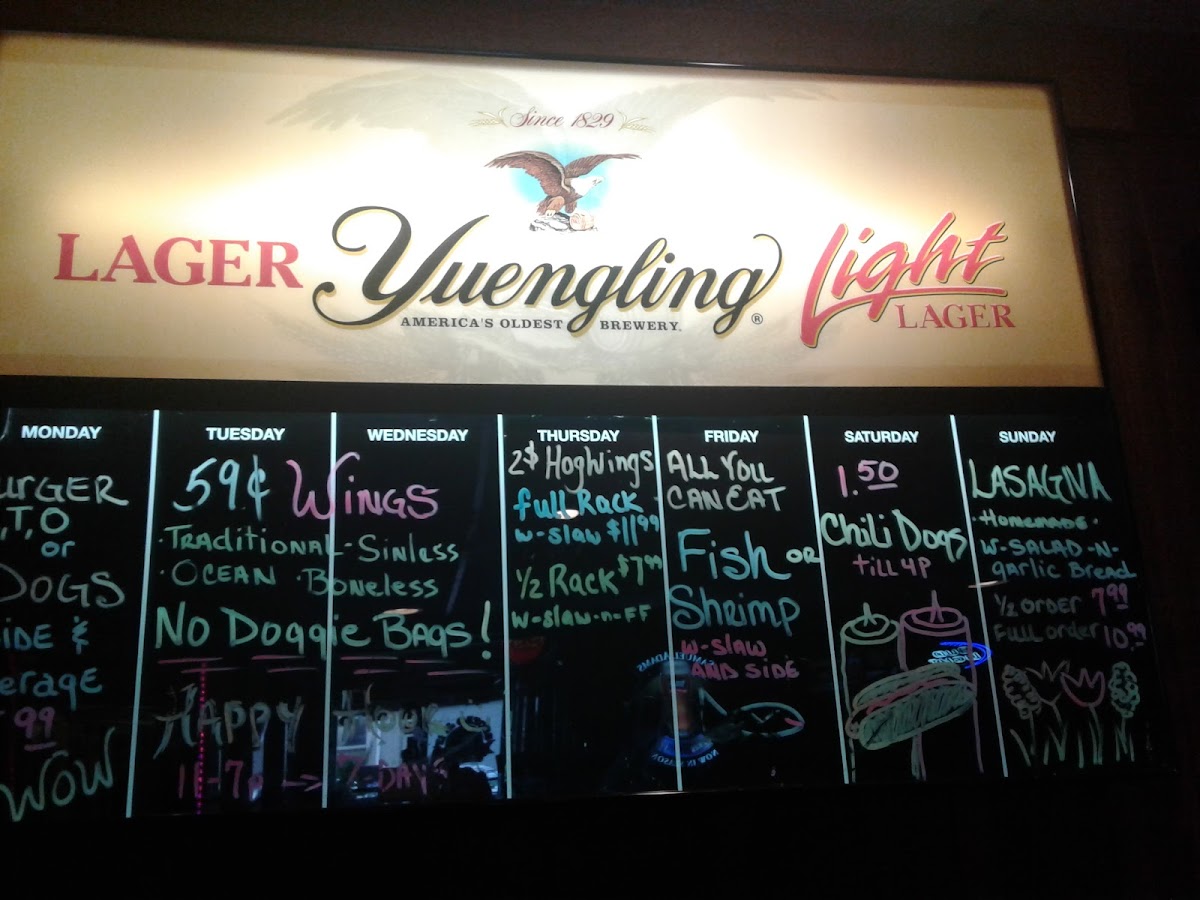 Since 1829
LAGER
Yuengling®
AMERICA'S OLDEST BREWERY.
Light
LAGER
MONDAY
URGER
,T,O
or
DOGS
IDE &
erage
99
WOW
TUESDAY
WEDNESDAY
59¢ WINGS
·TRADITIONAL - SINLESS
·OCEAN ·BONELESS
NO DOGGIE BAGS!
HAPPY HOUR
11-7P -> 7-DAYS
THURSDAY
2$ HogWings
full Rack
w-slaw $11.99
1/2 Rack $7.99
w-slaw-n-FF
FRIDAY
ALL YOU
CAN EAT
Fish OR
Shrimp
w-slaw
AND SIDE
SATURDAY
1.50
Chili Dogs
till 4P
SUNDAY
LASAGNA
·Homemade·
W-SALAD-N-
garlic Bread
1/2 order 7.99
full order 10.99
SAMUEL ADAMS